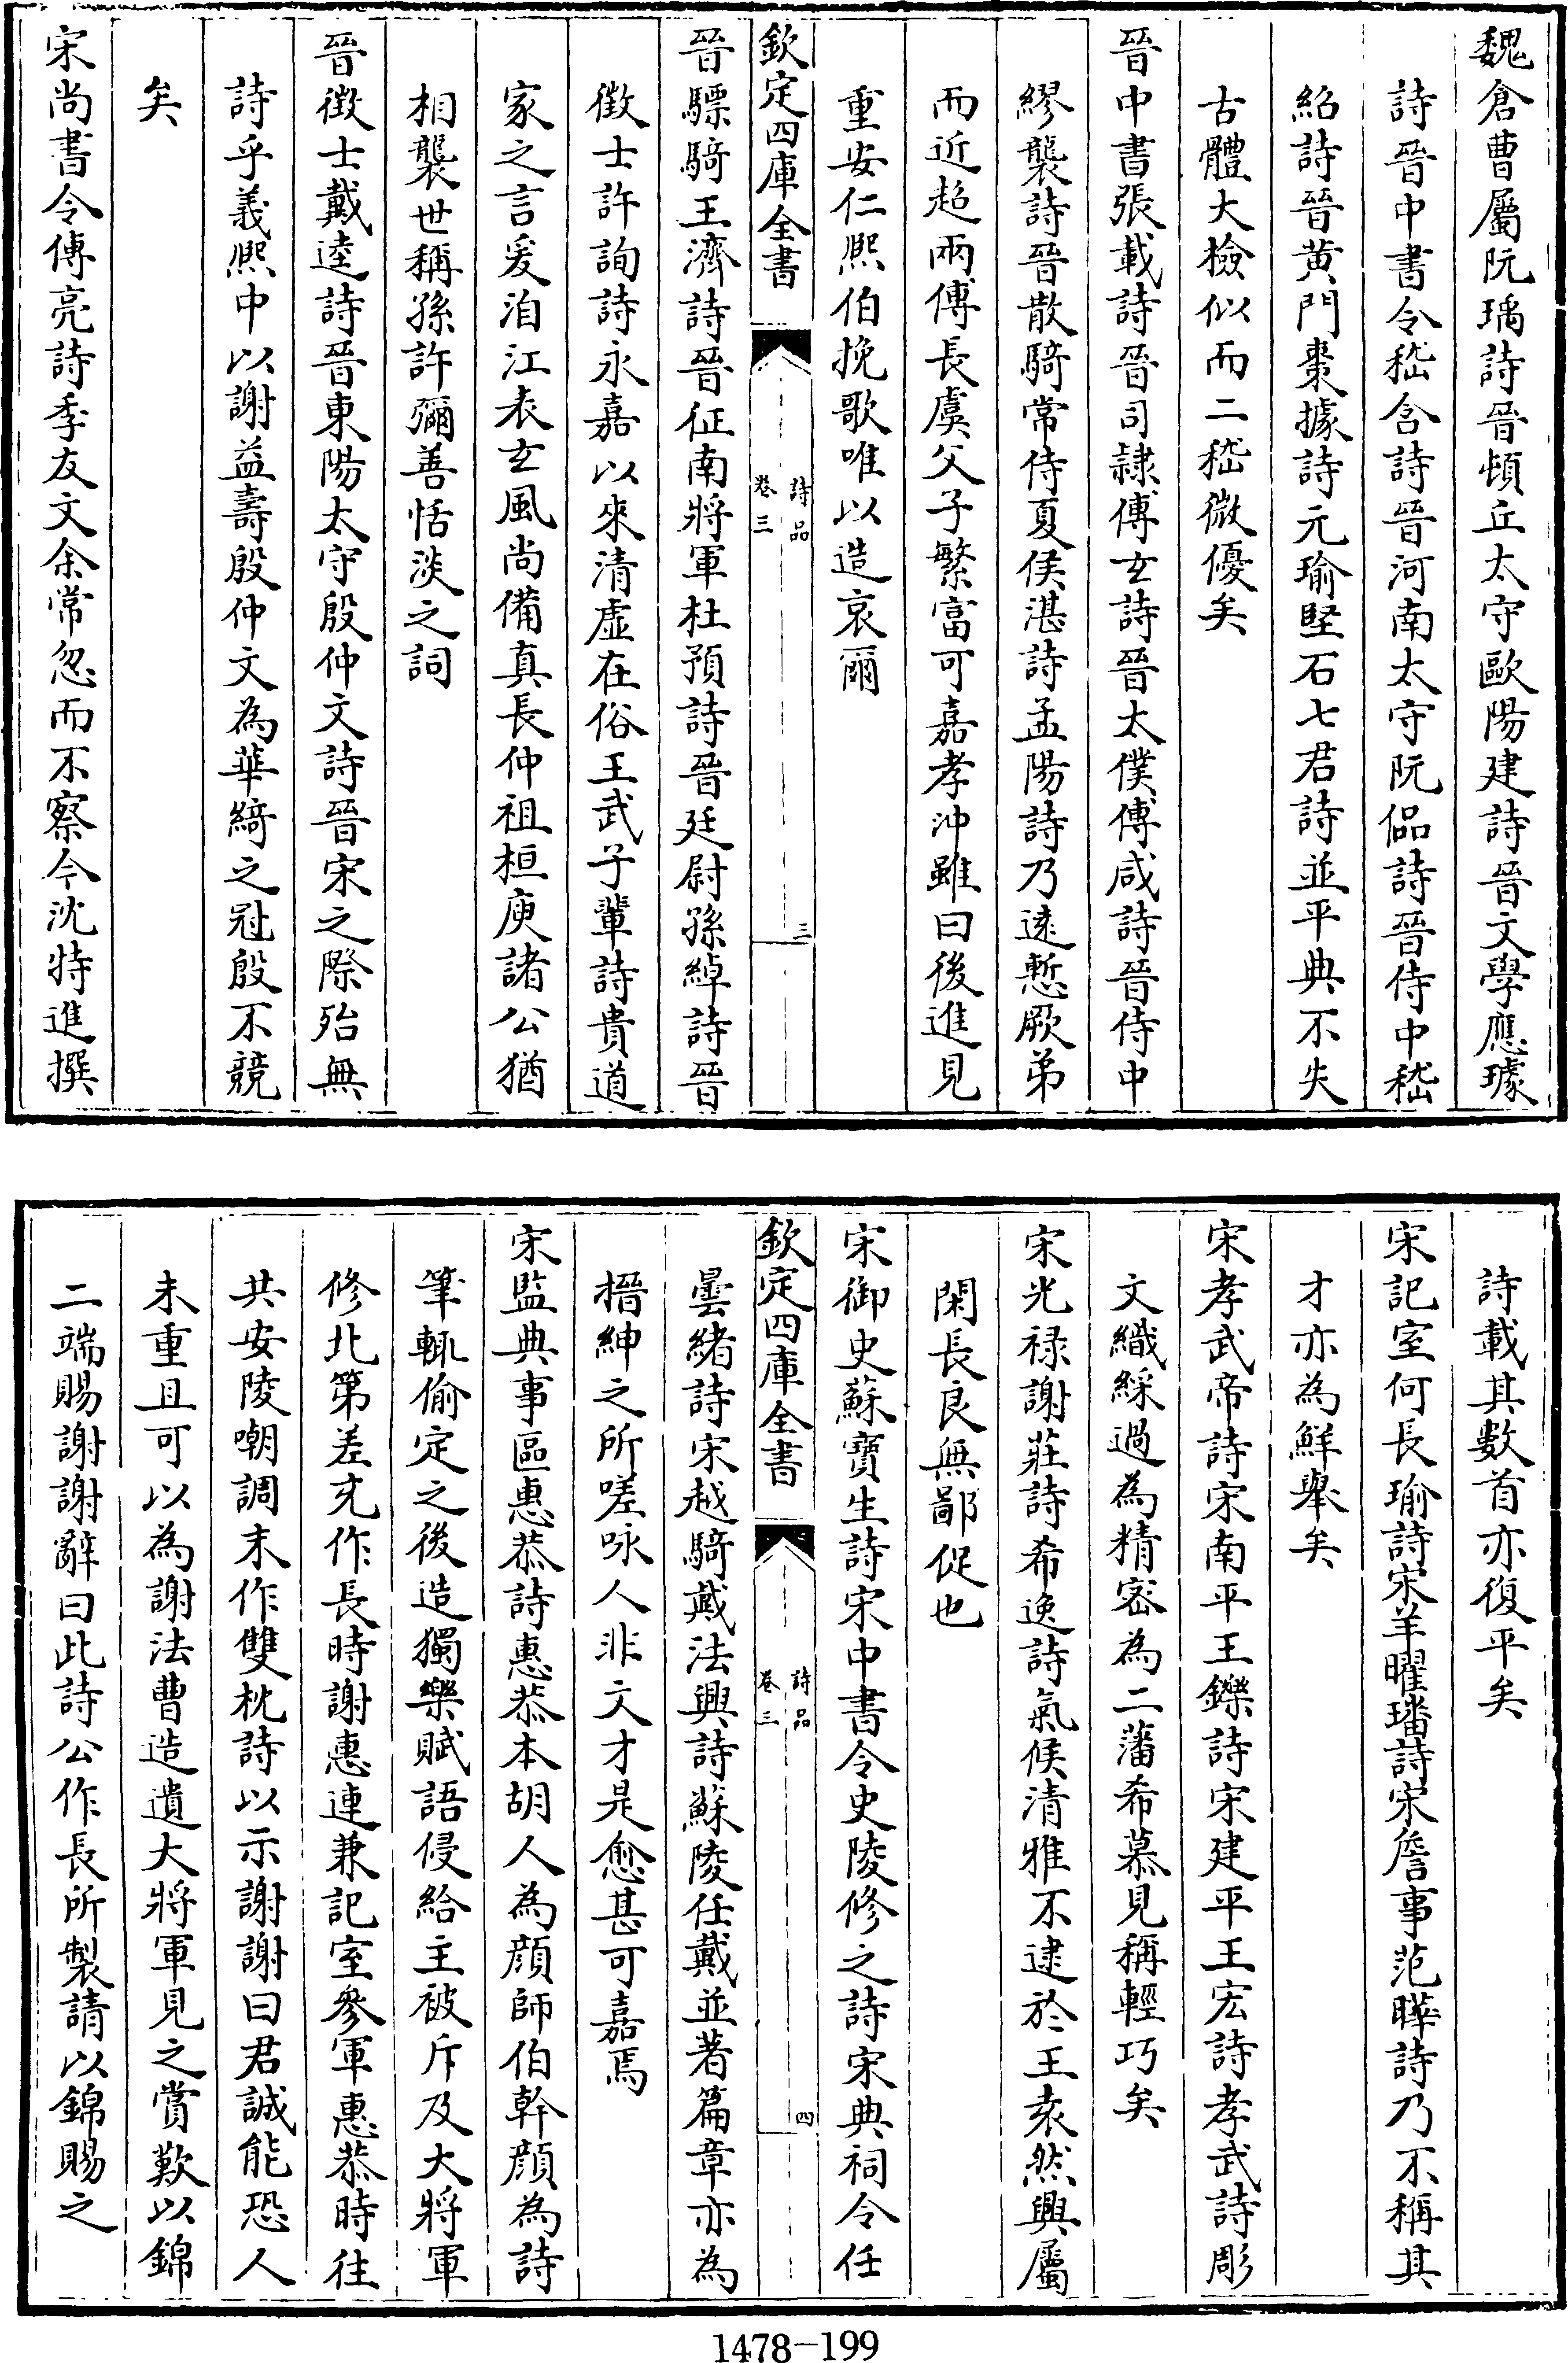 魏倉曹屬阮瑀詩晉頓丘太守歐陽建詩晉文學應璩
詩晉中書令嵇含詩晉河南太守阮侃詩晉侍中嵇
紹詩晉黃門棗據詩元瑜堅石七君詩並平典不失
古體大檢似而二嵇微優矣
晉中書張載詩晉司隷傅玄詩晉太僕傅咸詩晉侍中
繆襲詩晉散騎常侍夏侯湛詩孟陽詩乃遠慙厥弟
而近超兩傅長虞父子繁富可嘉孝沖雖曰後進見
重安仁熙伯挽歌唯以造哀爾
欽定四庫全書
詩品
卷三
三
晉驃騎王濟詩晉征南將軍杜預詩晉廷尉孫綽詩晉
徵士許詢詩永嘉以來清虛在俗王武子輩詩貴道
家之言爰洎江表玄風尚備真長仲祖桓庾諸公猶
相襲世稱孫許彌善恬淡之詞
晉徵士戴逵詩晉東陽太守殷仲文詩晉宋之際殆無
詩乎義熙中以謝益壽殷仲文為華綺之冠殷不競
矣
宋尚書令傅亮詩季友文余常忽而不察今沈特進撰
詩載其數首亦復平矣
宋記室何長瑜詩宋羊曜璠詩宋詹事范曄詩乃不稱其
才亦為鮮舉矣
宋孝武帝詩宋南平王鑠詩宋建平王宏詩孝武詩彫
文織綵過為精密為二藩希慕見稱輕巧矣
宋光祿謝莊詩希逸詩氣候清雅不逮於王袁然興屬
閑長良無鄙促也
宋御史蘇寶生詩宋中書令史陵修之詩宋典祠令任
欽定四庫全書
詩品
卷三
四
曇緒詩宋越騎戴法興詩蘇陵任戴並著篇章亦為
搢紳之所嗟咏人非文才是愈甚可嘉焉
宋監典事區惠恭詩惠恭本胡人為顔師伯幹顔為詩
筆輒偷定之後造獨樂賦語侵給主被斥及大將軍
修北第差充作長時謝惠連兼記室參軍惠恭時往
共安陵嘲調末作雙枕詩以示謝謝曰君誠能恐人
未重且可以為謝法曹造遺大將軍見之賞歎以錦
二端賜謝謝辭曰此詩公作長所製請以錦賜之
1478-199